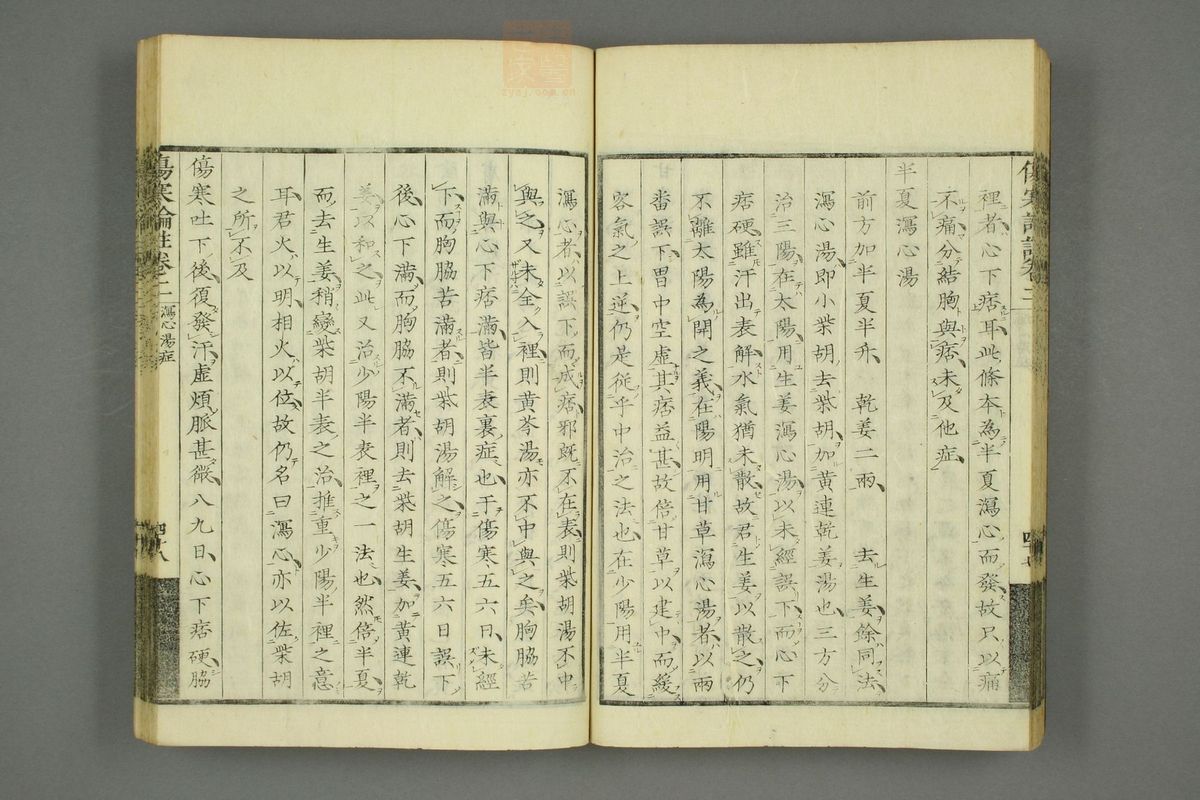 裡者心下痞耳此條本為半夏瀉心而發故只以痛
不痛分結胸與痞未及他症
半夏瀉心湯
前方加半夏半升 乾姜二兩 去生姜餘同法
瀉心湯即小柴胡去柴胡加黃連乾姜湯也三方分
治三陽在太陽用生姜瀉心湯以未經誤下而心下
痞硬雖汗出表解水氣猶未散故君生姜以散之仍
不離太陽為開之義在陽明用甘草瀉心湯者以兩
番誤下胃中空虛其痞益甚故倍甘草以建中而緩
客氣之上逆仍是從乎中治之法也在少陽用半夏
瀉心者以誤下而成痞邪既不在表則柴胡湯不中
與之又未全入裡則黃芩湯亦不中與之矣胸脇苦
滿與心下痞滿皆半表裏症也于傷寒五六日未經
下而胸脇苦滿者則柴胡湯解之傷寒五六日誤下
後心下滿而胸脇不滿者則去柴胡生姜加黃連乾
姜以和之此又治少陽半表裡之一法也然倍半夏
而去生姜稍變柴胡半表之治推重少陽半裡之意
耳君火以明相火以位故仍名曰瀉心亦以佐柴胡
之所不及
傷寒吐下後復發汗虛煩脈甚微八九日心下痞硬脇
傷寒論註卷之二
瀉心湯症
四十八